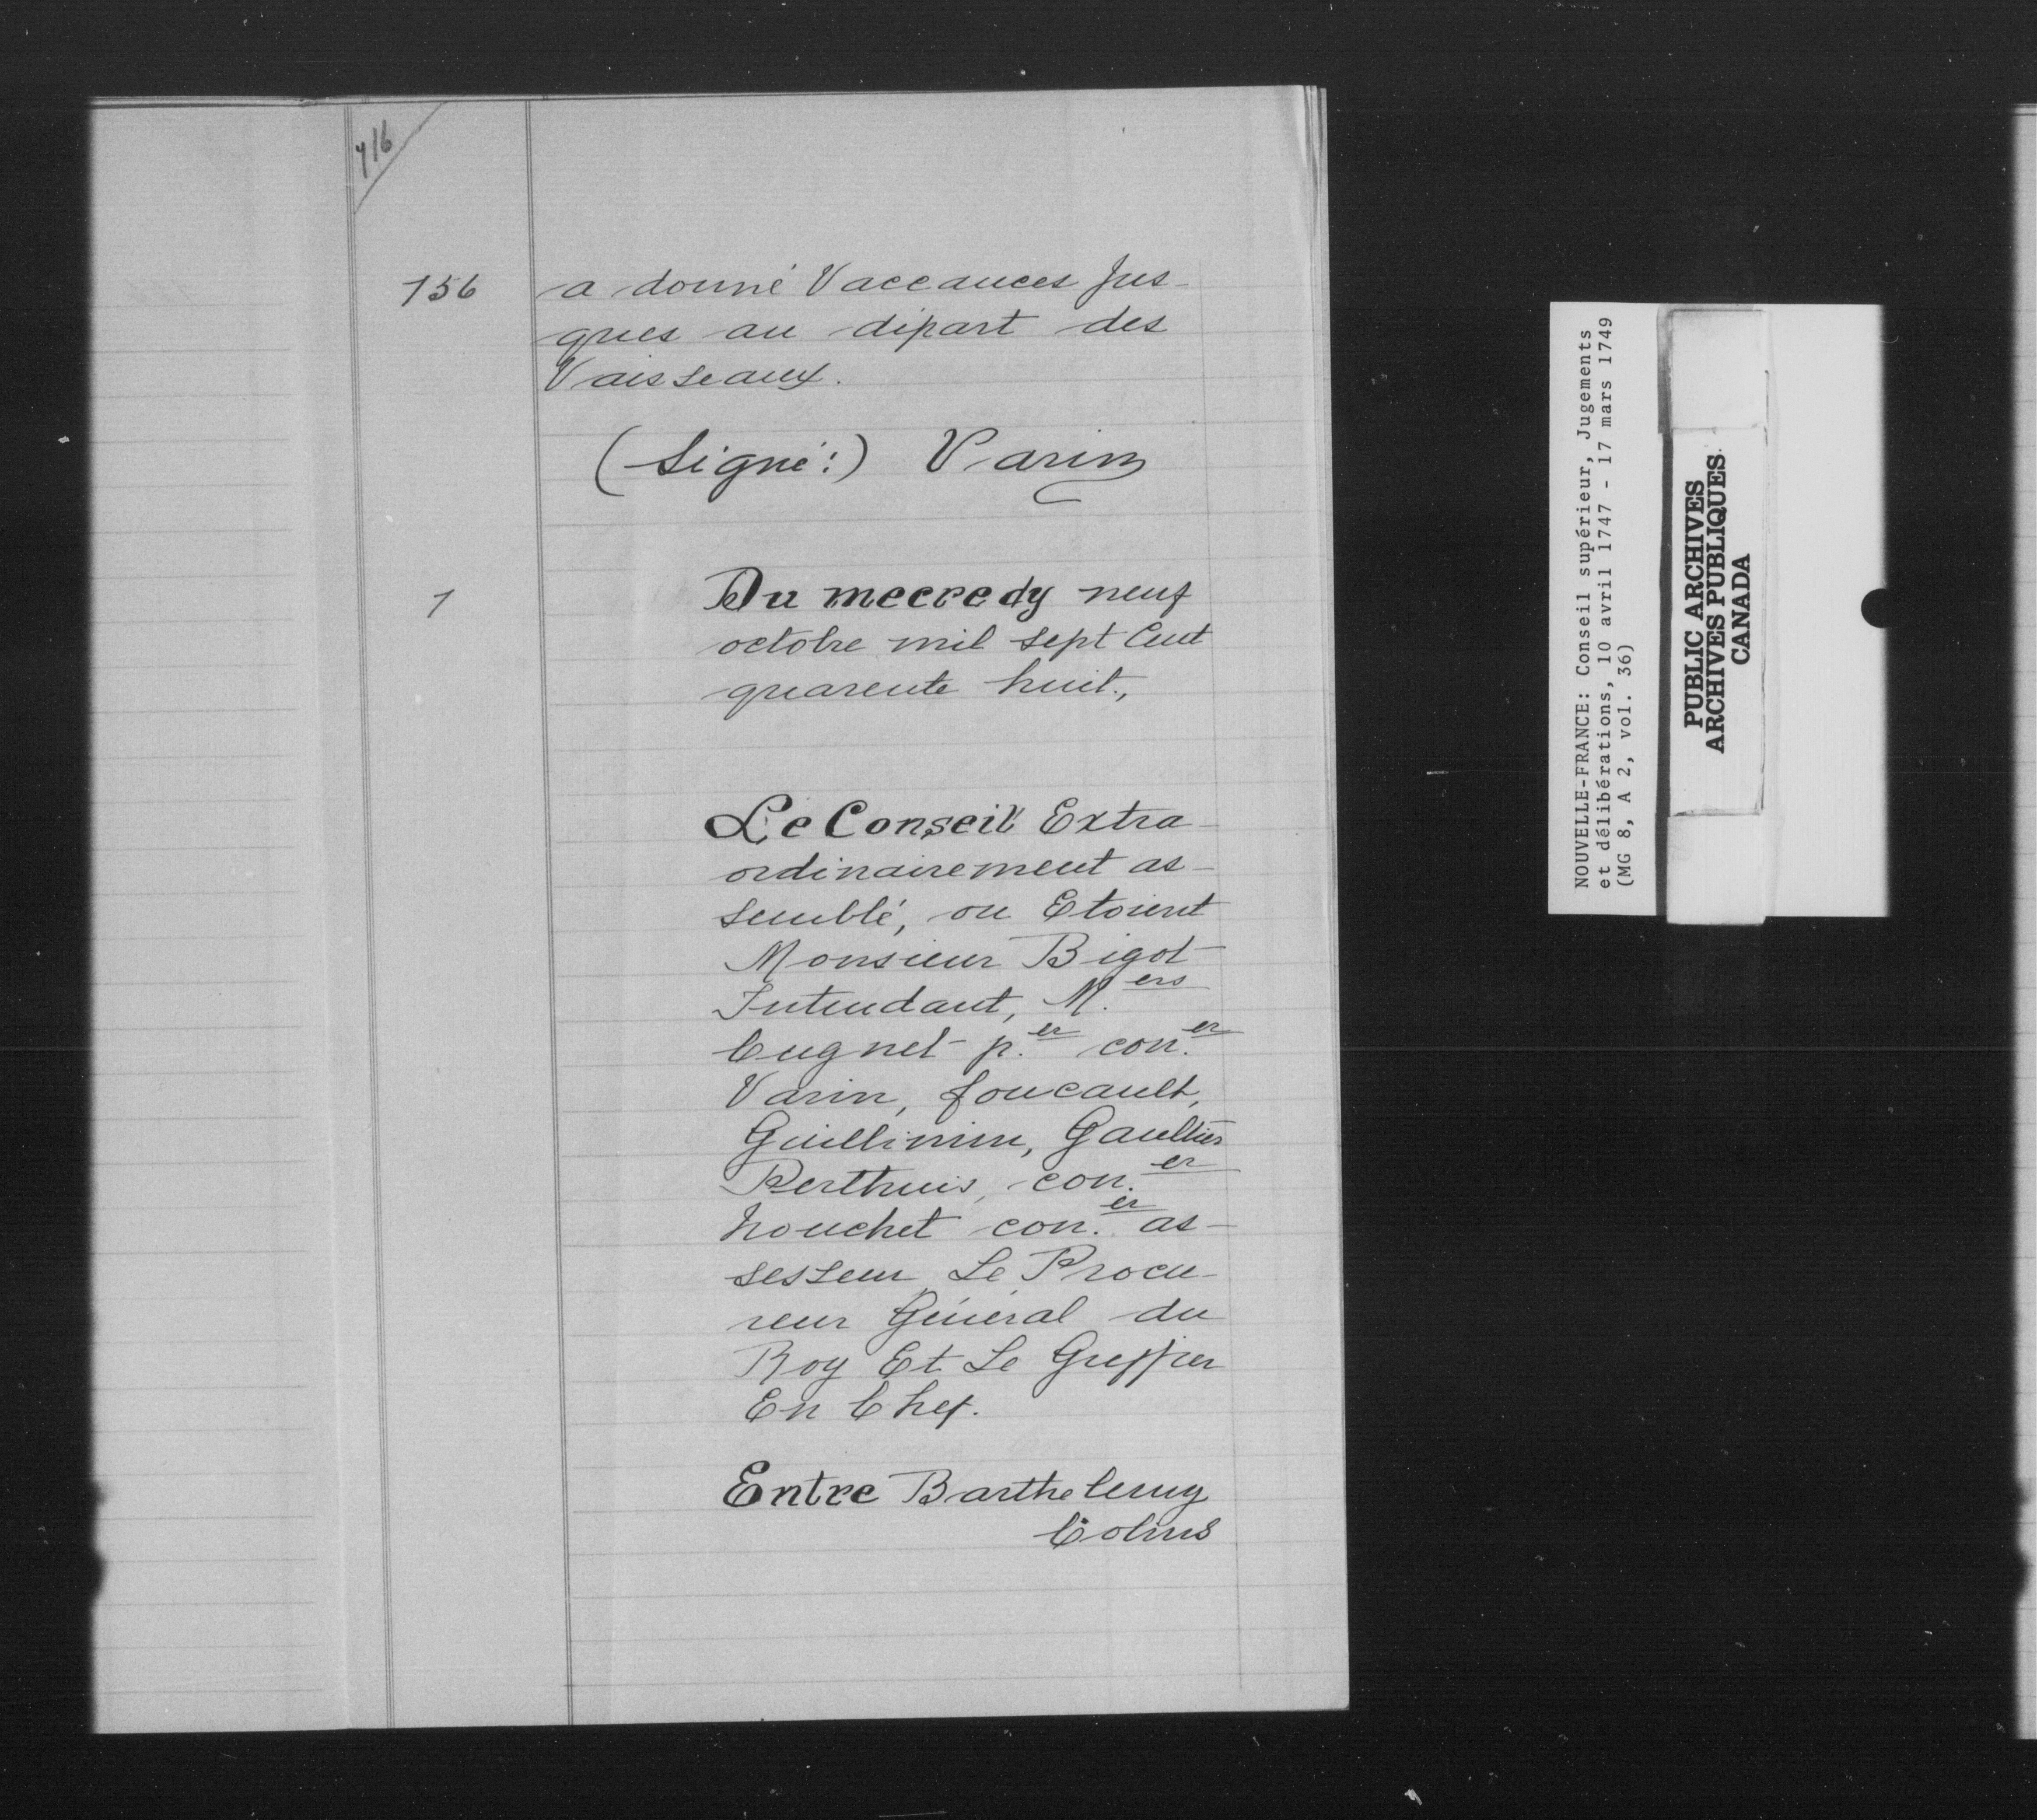 716
156
a donné Vaccances Jus-
ques au départ des
Vaisseaux.
(Signé:) Varin
1
Du mecredy neuf
octobre mil sept Cent
quarente huit.,
Le Conseil Extra-
ordinairement as-
semblé, ou Etoient
Monsieur Bigot
Intendant, M.ers
Cugnet p.er con.er
Varin, foucault,
Guillimin, Gaultier
Perthuis, con.er
nouchet con.er as-
sesseur Le Procu-
reur Général du
Roy Et Le Greffier
En Chef.
Entre Barthelemy
Colins
NOUVELLE-FRANCE: Conseil supérieur, Jugements
et délibérations, 10 avril 1747 - 17 mars 1749
(MG 8, A 2, vol. 36)
PUBLIC ARCHIVES
ARCHIVES PUBLIQUES
CANADA